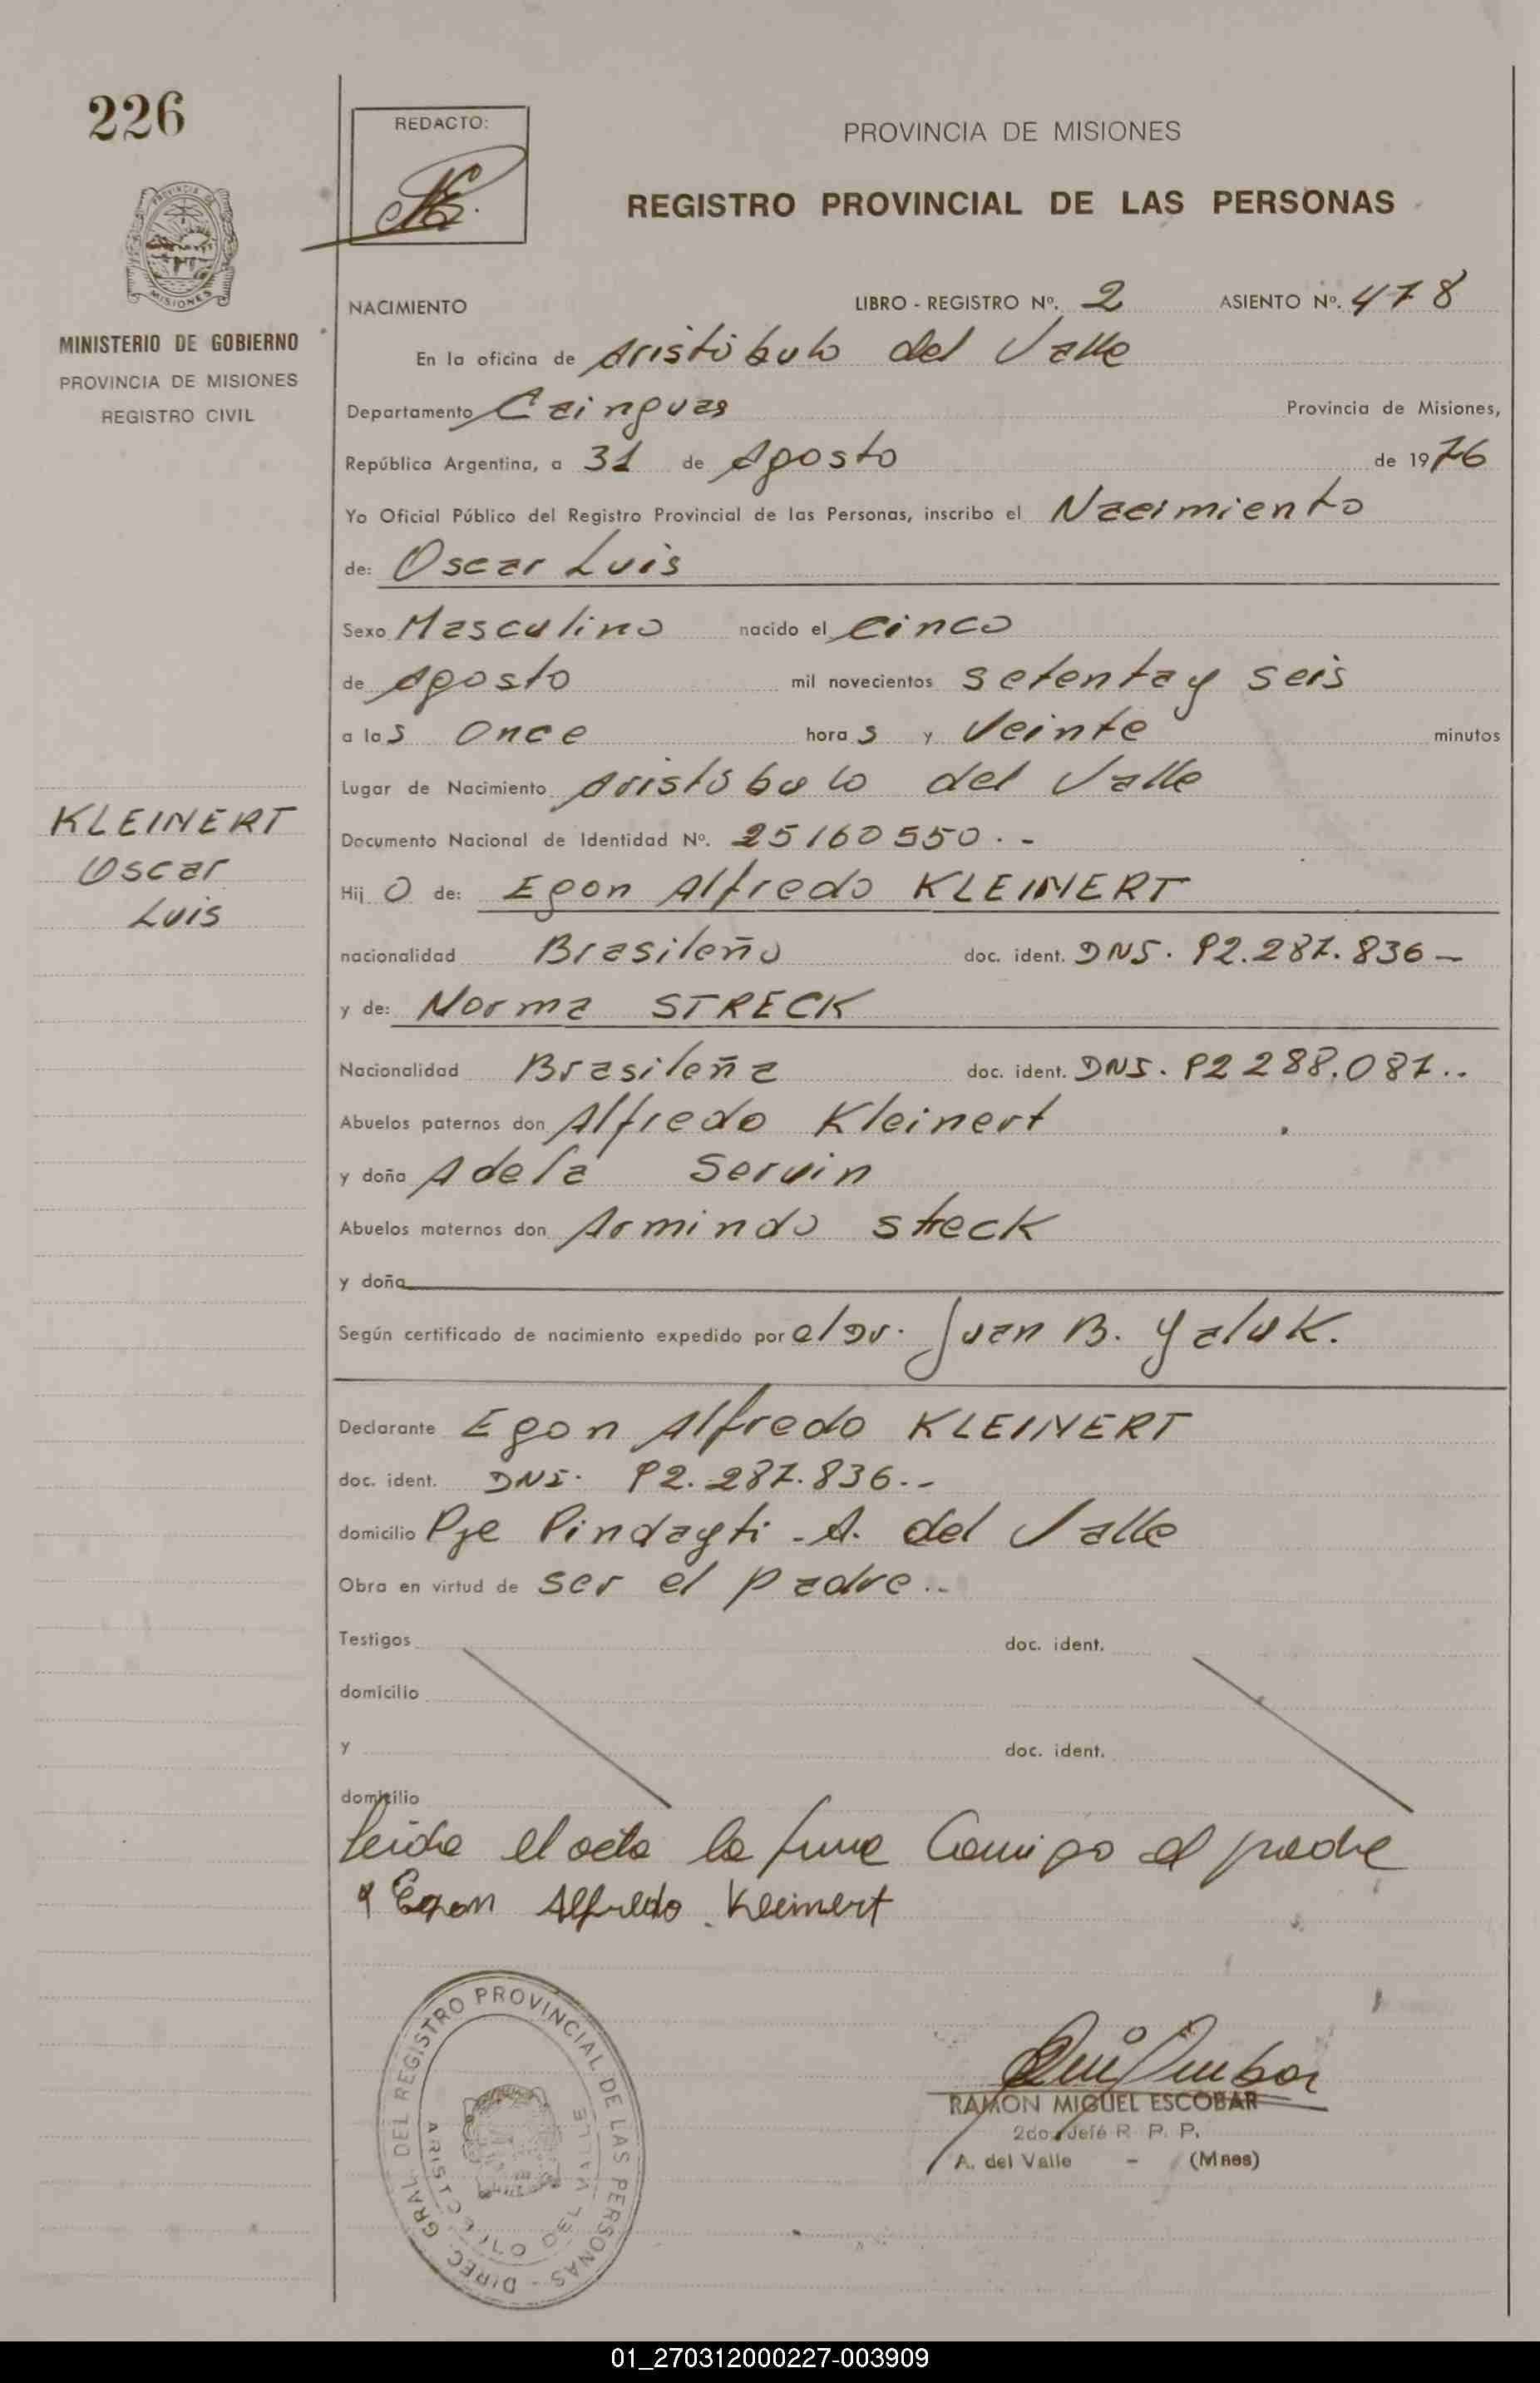 226
REDACTO:
PROVINCIA DE MISIONES
REGISTRO PROVINCIAL DE LAS PERSONAS
PROVINCIA DE
MISIONES
MINISTERIO DE GOBIERNO
PROVINCIA DE MISIONES
REGISTRO CIVIL
NACIMIENTO LIBRO - REGISTRO Nº. 2 ASIENTO Nº. 478
En la oficina de Aristóbulo del Valle
Departamento Cainguas Provincia de Misiones,
República Argentina, a 31 de Agosto de 1976
Yo Oficial Público del Registro Provincial de las Personas, inscribo el Nacimiento
de: Oscar Luis
Sexo Masculino nacido el Cinco
de Agosto mil novecientos setenta y seis
a las once horas y Veinte minutos
Lugar de Nacimiento Aristóbulo del Valle
KLEINERT
Oscar
Luis
Documento Nacional de Identidad Nº. 25160550.-
Hijo de: Egon Alfredo KLEINERT
nacionalidad Brasileño doc. ident. DNI. 92.287.836-
y de: Norma STRECK
Nacionalidad Brasileña doc. ident. DNI. 92288.087..
Abuelos paternos don Alfredo Kleinert
y doña Adela Servin
Abuelos maternos don Armindo Streck
y doña
Según certificado de nacimiento expedido por el Dr. Juan B. Yaluk.
Declarante Egon Alfredo KLEINERT
doc. ident. DNI. 92.287.836.-
domicilio Pje Pindayti - A. del Valle
Obra en virtud de ser el padre..
Testigos doc. ident.
domicilio
y doc. ident.
domicilio
Leida el acta la firma Conmigo el padre
Egon Alfredo Kleinert
DIREC. GRAL. DEL REGISTRO PROVINCIAL DE LAS PERSONAS -
ARISTOBULO DEL VALLE
RAMON MIGUEL ESCOBAR
2do. Jefe R. P. P.
A. del Valle - (Mnes)
01_270312000227-003909